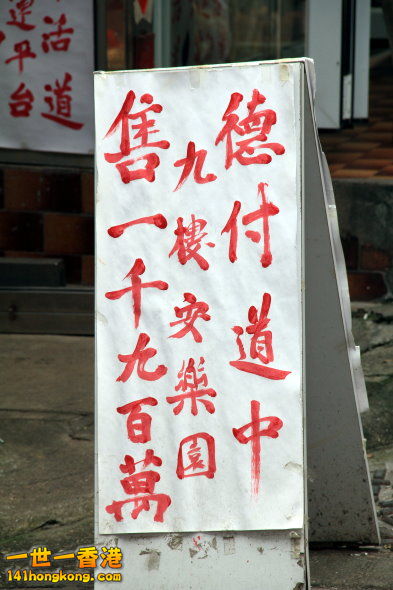 德付道中
九樓安樂園
售一千九百萬
活道
運平台
一世一香港
141hongkong.com